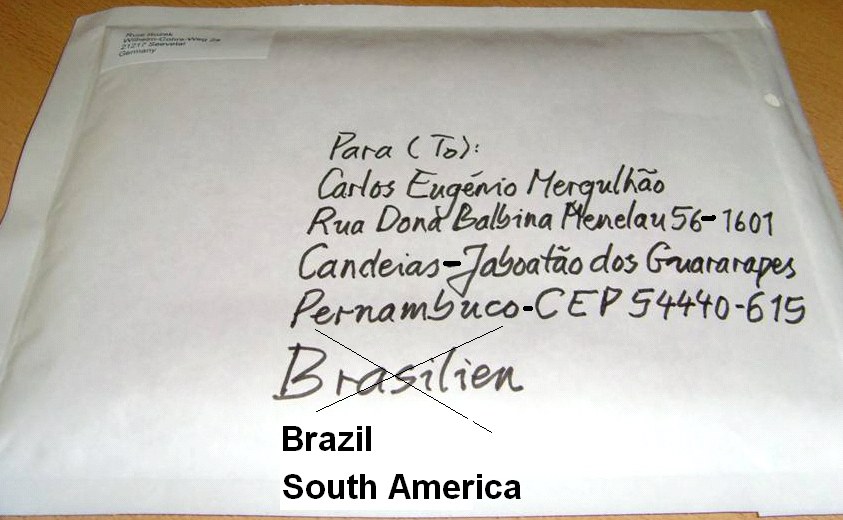 21217 Seevetal
Germany
Para (To):
Carlos Eugénio Mergulhão
Rua Dona Balbina Menelau 56-1601
Candeias-Jaboatão dos Guararapes
Pernambuco-CEP 54440-615
Brasilien
Brazil
South America